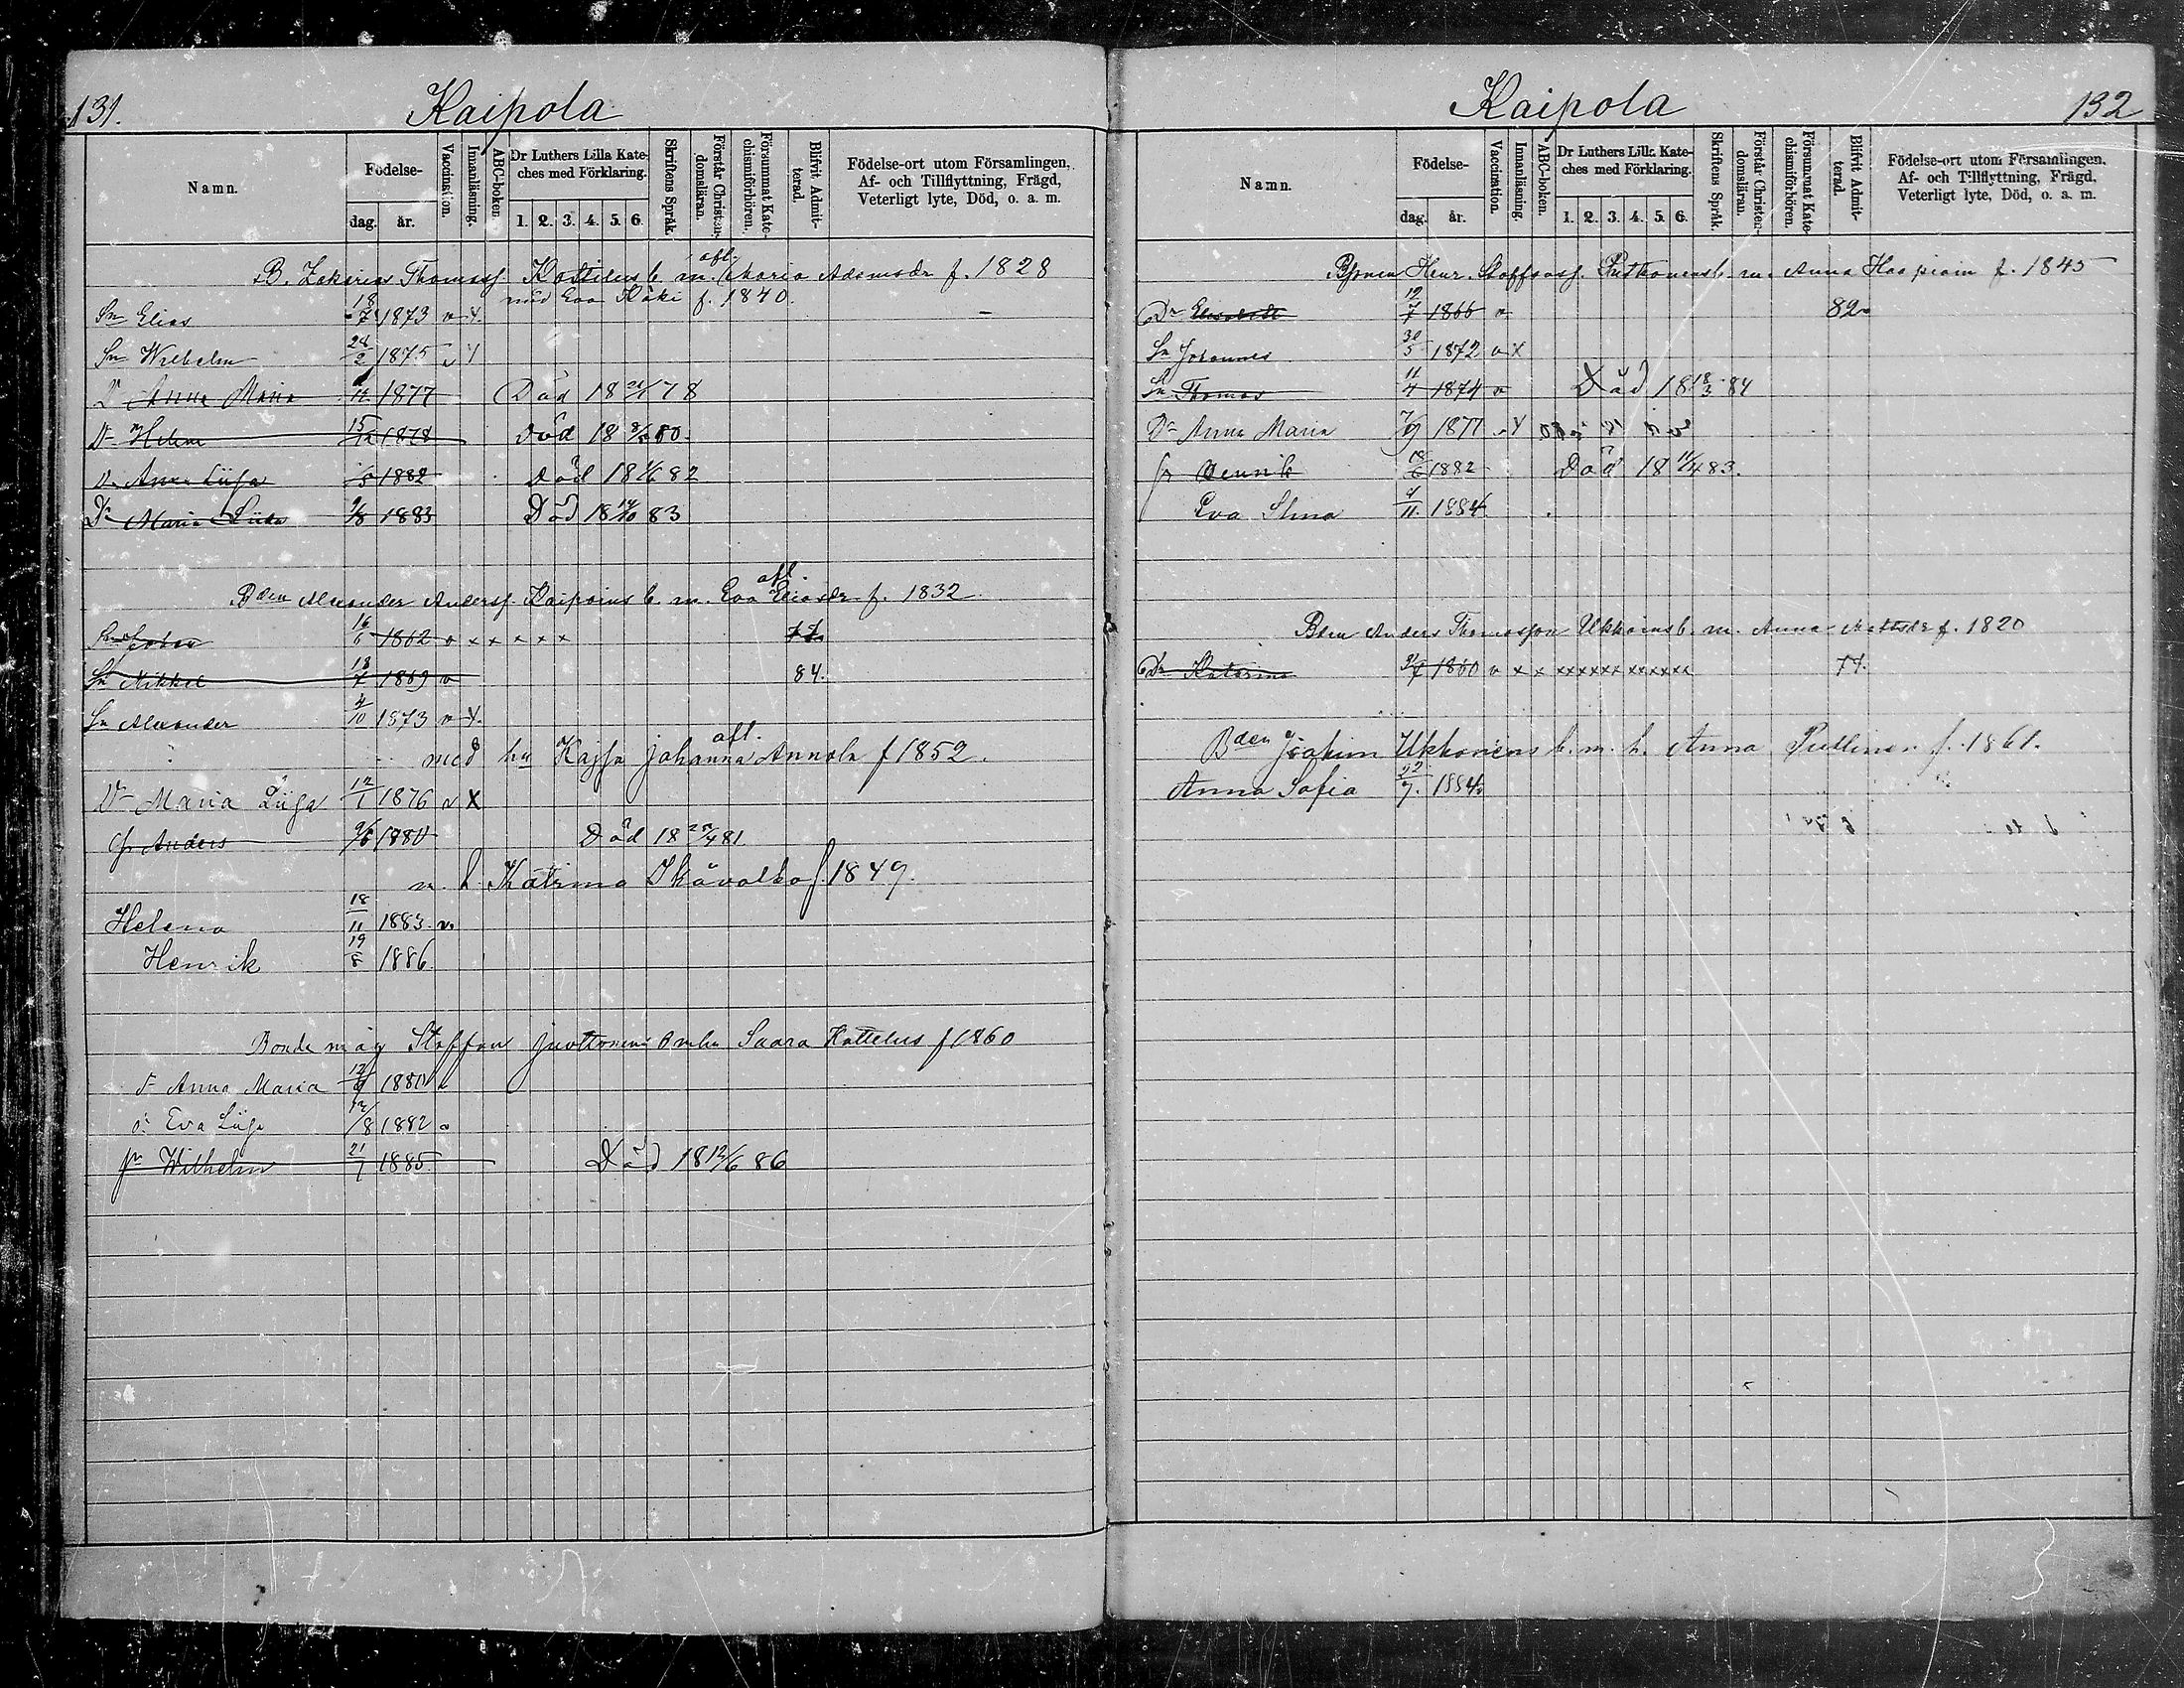 131.
Kaipola
Namn.
Födelse-
dag. år.
Vaccination.
Innanläsning.
ABC-boken
Dr Luthers Lilla Kate-
ches med Förklaring.
1. 2. 3. 4. 5. 6.
Skriftens Språk.
Förstår Christen-
domsläran.
Försummat Kate-
chismiförhören.
Blifvit Admit-
terad.
Födelse-ort utom Församlingen,
Af- och Tillflyttning, Frägd,
Veterligt lyte, Död, o. a. m.
afl.
B. Zakarias Thomass. Kottelus b. m. Maria Adamsdr f. 1828
med Eva Käki f. 1840.
Sn Elias 18/7 1873 v x
Sn Wilhelm 28/2 1875 v x
Dr Anna Maria 1877 Död 1878
Dr Helena 15/12 1878 Död 1880.
Dr Anna Liisa 1882 Död 1882
Dr Maria Liisa 9/8 1883 Död 18 14/10 83
afl.
Bden Alexander Anderss. Kaipainus b. m. Eva Eliasdr f. 1832
Sn Johan 16/6 1862 v x x x x x 77.
Sn Mikkel 18/7 1869 v 84.
Sn Alexander 4/10 1873 v x.
afl.
med hu Kajsa Johanna Annola f 1852.
Dr Maria Liisa 12/1 1876 v X
Sn Anders 1880 Död 1881
m. h. Katrina f 1849.
Helena 18/11 1883. v.
Henrik 19/8 1886
Bonde måg Staffan Juottonens b m hu Saara Kottelus f 1860
dr Anna Maria 1880 v
dr Eva Liisa 12/8 1882 v
sn Wilhelm 21/7 1885 Död 18 12/6 86
Kaipola
132
Namn.
Födelse-
dag. år.
Vaccination.
Innanläsning.
ABC-boken.
Dr Luthers Lilla Kate-
ches med Förklaring.
1. 2. 3. 4. 5. 6.
Skriftens Språk.
Förstår Christen-
domsläran.
Försummat Kate-
chismiförhören.
Blifvit Admit-
terad.
Födelse-ort utom Församlingen,
Af- och Tillflyttning, Frägd,
Veterligt lyte, Död, o. a. m.
Henr. Staffanss. m. Anna Haapiain f. 1845
Dr Elisabett 12/7 1866 v 82.
Sn Johannes 30/5 1872 v x
Sn Thomas 11/4 1874 v Död 18 18/3 84
Dr Anna Maria 1877 v x
Sn Henrik 18/6 1882 Död 18 11/4 83.
Eva Stina 4/11. 1884
Bden Anders Thomasson Ukkoins b. m. Anna Mattsdr f. 1820
Dr Katarina 1860 v x x xxxxxx xxxxxx 77.
Bden Joakim Ukkonens b. m. h. Anna Pulliner f. 1861.
Anna Sofia 22/7. 1884.